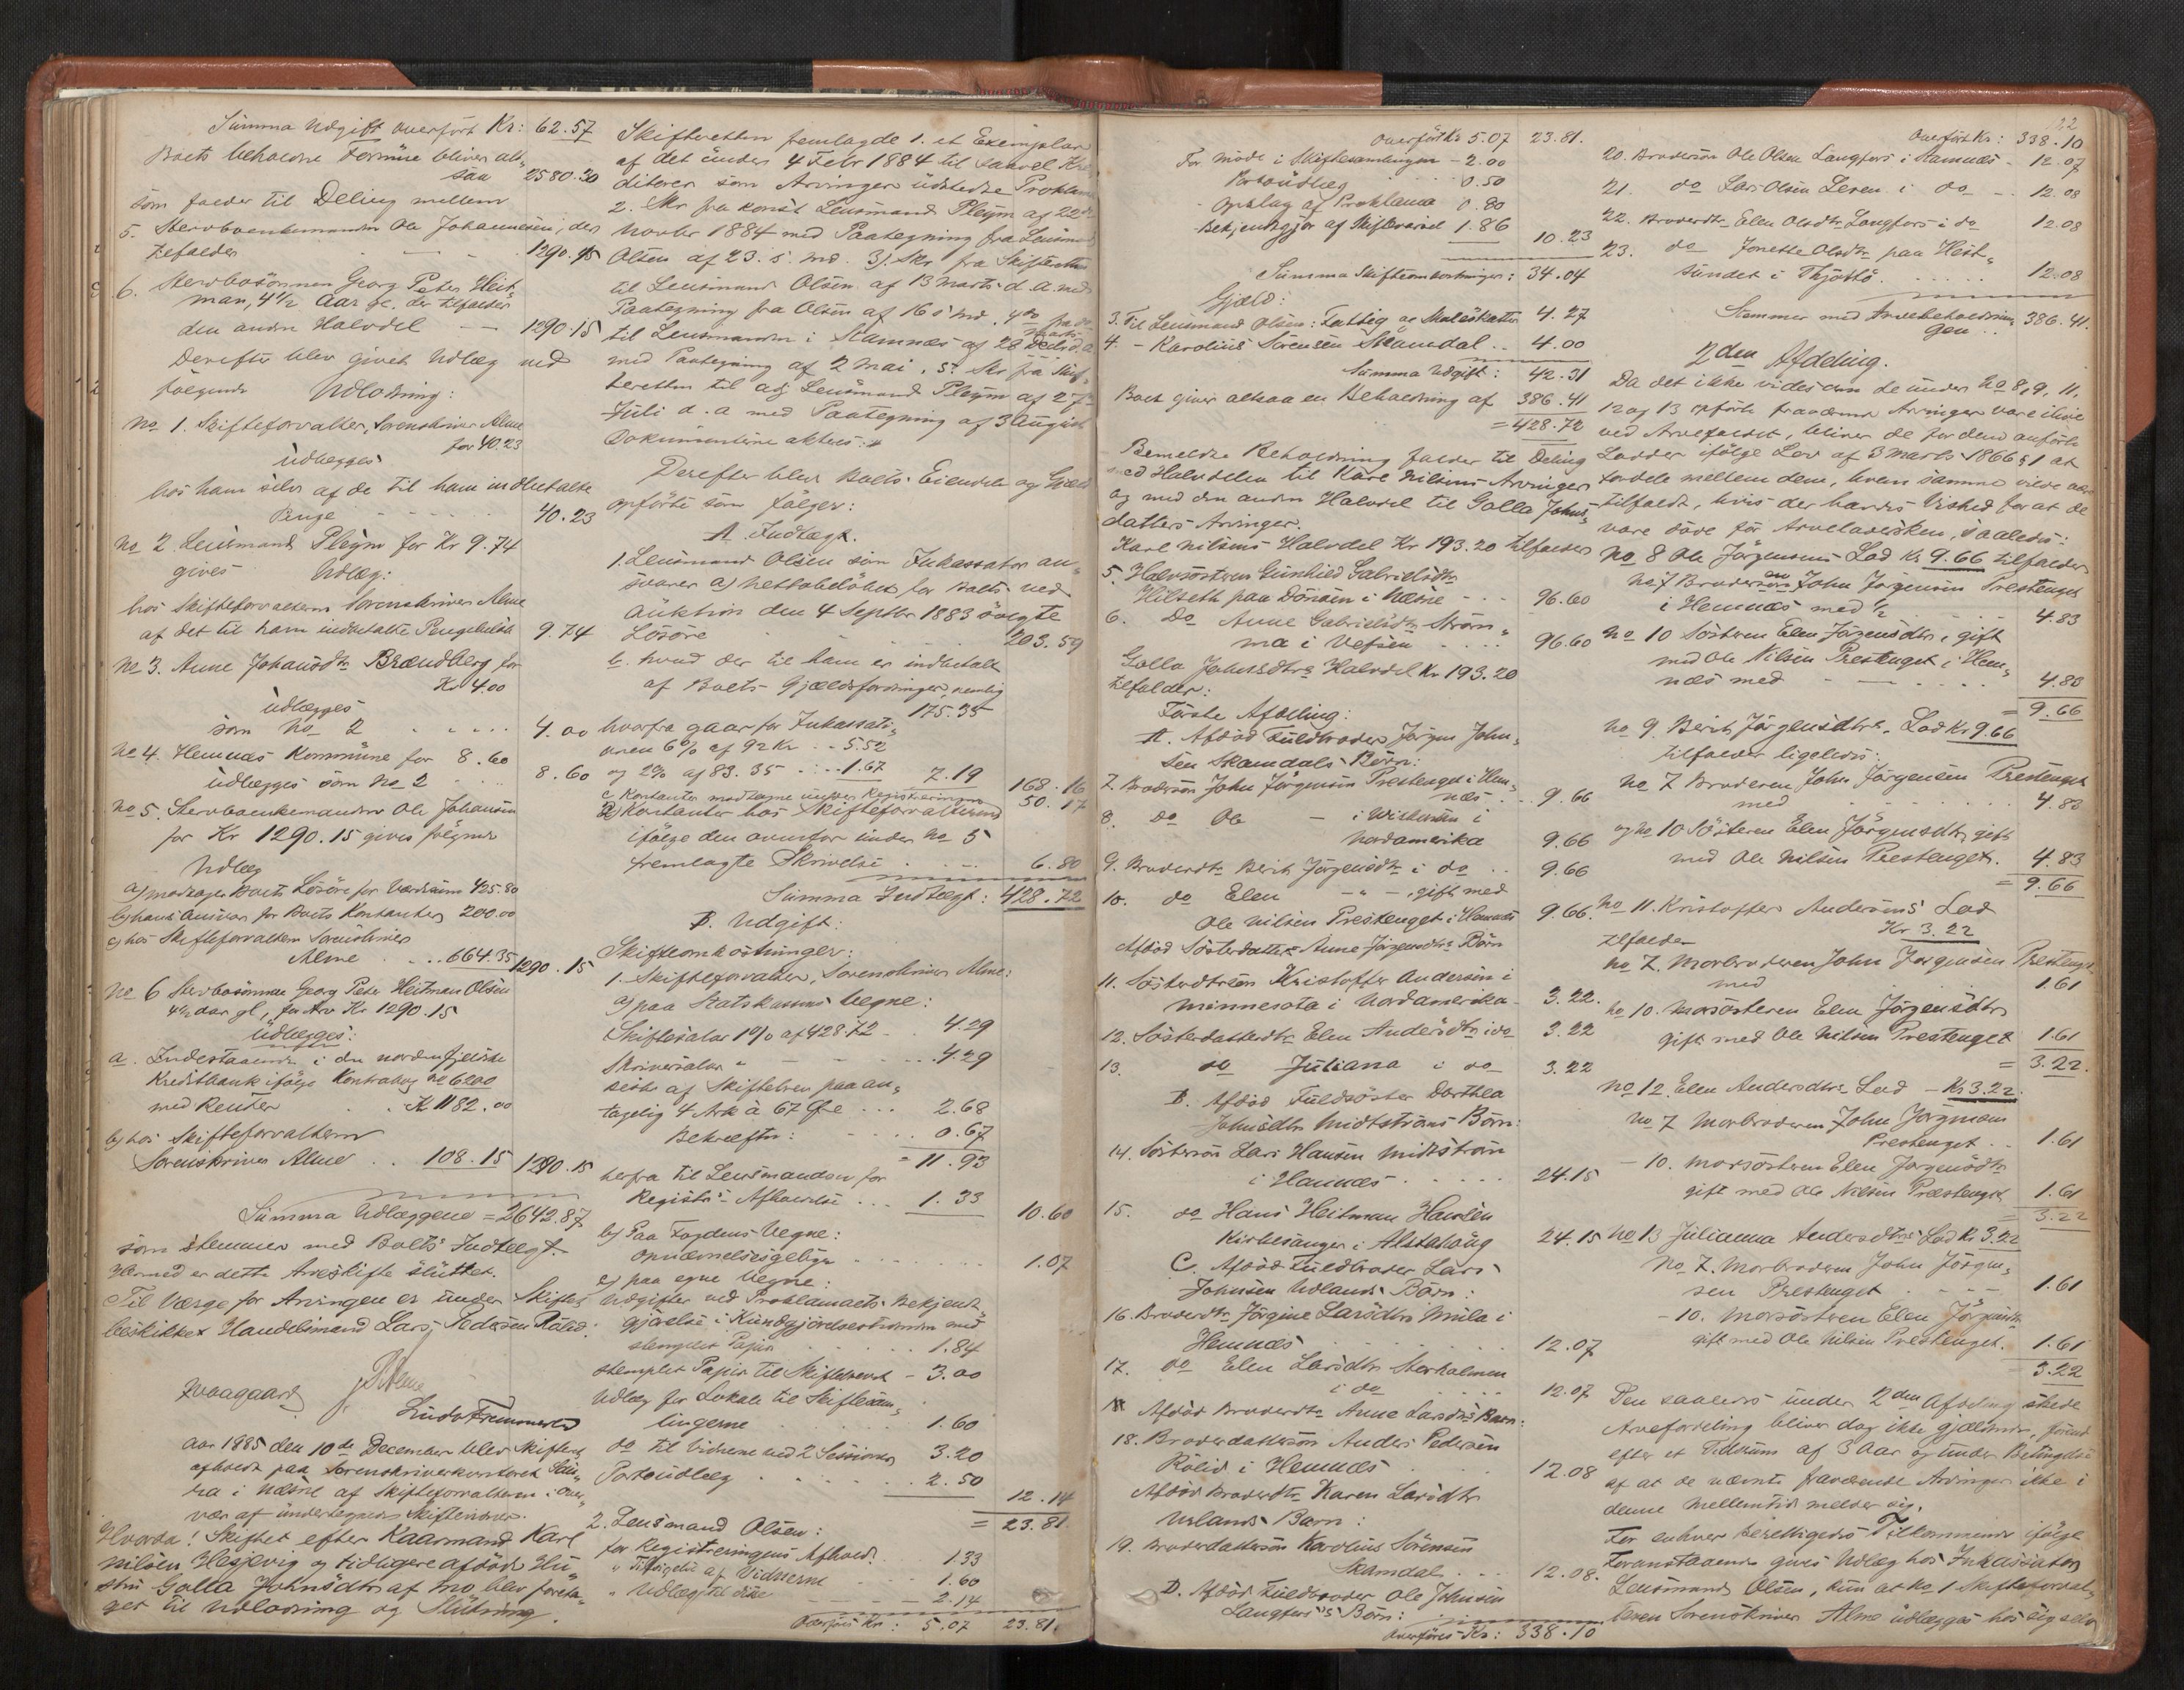 Summa Udgift overført Kr: 62.57
Boets beholdne Formue bliver alt-
saa 2580.30
som falder til Deling mellem
5. Stervboenkemanden Ole Johannesen, der
tilfalder 1290.15
6. Stervbosönnen Georg Peter Heit-
man, 4 1/2 Aar gl. der tilfalder
den anden Halvdel — 1290.15
Derefter blev givet Udlæg ved
fölgende Udlodning:
No 1. Skifteforvalter, Sorenskriver Alme
for 40.23
udlægges
hos ham selv af de til ham indbetalte
Penge 40.23
No 2 Lensmand Pleym for Kr 9.74
gives Udlæg:
hos Skifteforvalteren Sorenskriver Alme
af det til ham indbetalte Pengebeløb 9.74
No 3. Anne Johansdtr Brændberg for
Kr 4.00
udlægges
som No 2 4.00
No 4. Hemnæs Kommune for 8.60
udlægges som No 2 8.60
No 5. Stervboenkemanden Ole Johansen
for Kr 1290.15 gives fölgende
Udlæg
a) modtagne Boets Lösöre for Værdsum 425.80
b) hans Ansvar for Boets Kontanter 200.00
c) hos Skifteforvalteren Sorenskriver
Alme 664.35 1290.15
No 6 Stervbosönnen Georg Peter Heitman Olsen
4 1/2 aar gl, for Arv Kr 1290.15
udlægges:
a. Indestaaende i den nordenfjeldske
Kreditbank ifölge Kontrabog No 6200
med Renter Kr 1182.00
b) hos Skifteforvalteren
Sorenskriver Alme 108.15 1290.15
Summa Udlæggene = 2642.87
som stemmer med Boets Indtægt.
Hermed er dette Arveskifte sluttet.
Til Værge for Arvingen er under Skiftet
beskikket Handelsmand Lars Pedersen Rölid.
Alme
Aar 1885 den 10de December blev Skifteret
afholdt paa Sorenskriverkontoret Sau-
ra i Næsne af Skifteforvalteren i Over-
vær af undertegnede Skiftevidner.
Hvorda! Skiftet efter Kaarmand Karl
Nilsen Hesjevig og tidligere afdöde Hu-
stru Golla Johnsdtr af Mo blev foreta-
get til Udlodning og Slutning.
Skifteretten fremlagde 1. et Exemplar
af det under 4 Febr 1884 til saavel Kre
ditorer som Arvinger udstedte Proklama
2. Skr fra konst Lensmand Pleym af 22de
Novbr 1884 med Paategning fra Lensmand
Olsen af 23. s. md. 3). Skr fra Skifteretten
til Lensmand Olsen af 13 Marts d. A. med
Paategning fra Olsen af 16 s md. 4de fra do
til Lensmanden i Stamnæs af 28 Marts d. a
med Paategning af 2 Mai. 5. Skr fra Skif-
teretten til adj Lensmand Pleym af 27
Juli d. a med Paategning af 3 August
Dokumenterne akteres.
Derefter blev Boets Eiendele og Gjæld
opförte som fölger:
A. Indtægt.
1. Lensmand Olsen som Inkassator an-
svarer a) Nettobelöbet for Boets ved
Auktion den 4 Septbr 1883 solgte
Lösöre 203.59
b. hvad der til ham er indbetalt
af Boets Gjældsfordringer, nemlig
175.35
hvorfra gaar for Inkassati-
onen 6% af 92 Kr. 5.52
og 2% af 83.35 1.67 7.19 168.16
c Kontanter modtagne under Registreringen 50.17
2) Kontanter hos Skifteforvalteren
ifölge den ovenfor under No 5
fremlagte Skrivelse 6.80
Summa Indtægt: 428.72
B. Udgift:
Skifteomkostninger:
1. Skifteforvalter, Sorenskriver Alme:
a) paa Statskassens Vegne:
Skiftesalar 1% af 428.72 4.29
Skriversalar " 4.29
beskr af Skiftebrev paa an-
tagelig 4 Ark à 67 Øre 2.68
Bekræftn: 0.67
= 11.93
herfra til Lensmanden for
Registr- Afholdelse 1.33 10.60
b) Paa Fogdens Vegne:
Opnævnelsesgebyr 1.07
c) paa egne Vegne:
Udgifter ved Proklamaets Bekjendt-
gjörelse i Kundgjörelsestidende med
stemplet Papir 1.84
stemplet Papir til Skiftebrevet - 3.00
Udlæg for Lokale til Skiftesam-
lingerne 1.60
do til Vidnerne ved 2 Sessioner 3.20
Portoudlæg 2.50
12.14
= 23.81
2. Lensmand Olsen:
for Registreringens Afhold. 1.33
" Tilsigelse af Vidnerne 1.60
" Udlæg til disse 2.14
Overføres Kr: 5.07 23.81.
Overført Kr 5.07 23.81.
For Möde i Skiftesamlingen - 2.00
Portoudlæg 0.50
- Opslag af Proklama 0.80
Bekjendtgjör af Skiftevarsel 1.86
10.23
Summa Skifteomkostninger: 34.04
Gjæld:
3. Til Lensmand Olsen: Fattig og Skoleskatter 4.27
4. - Karolius Sörensen Skamdal 4.00
Summa Udgift: 42.31
Boet giver altsaa en Beholdning af 386.41
= 428.72
Bemeldte Beholdning falder til Deling
med Halvdelen til Karl Nilsens Arvinger
og med den anden Halvdel til Golla Johns-
datters Arvinger.
Karl Nilsens Halvdel Kr 193.20 tilfalder
5. Halvsösteren Gunhild Gabrielsdtr
Hilseth paa Dönsen i Næsne 96.60
6. Do Anne Gabrielsdtr Ström-
ma i Vefsen 96.60
Golla Johnsdtrs Halvdel Kr 193.20
tilfalder:
Förste Afdeling:
A. Afdöd Fuldbroder Jörgen John-
sen Skamdals Börn:
7. Brodersön John Jörgensen Prestenget i Hem-
næs 9.66
8. do Ole — i Wiskonsin i
Nordamerika 9.66
9. Broderdtr Berit Jörgensdtr i do 9.66
10. do Elen — " —, gift med
Ole Nilsen Prestenget i Hemnæs 9.66.
Afdöd Sösterdatter Anne Jörgensdtrs Börn
11. Sösterdtrsön Kristoffer Andersen i
Minnesota i Nordamerika 3.22.
12. Sösterdatterdtr Elen Andersdtr i do 3.22
13. do Juliana i do 3.22
B. Afdöd Fuldsöster Dorthea
Johnsdtr Midtströms Börn:
14. Söstersön Lars Hansen Midtström
i Hemnæs 24.15
15. do Hans Heitman Hansen
Kirkesanger i Alstahaug 24.15
C. Afdöd Fuldbroder Lars
Johnsen Urlands Börn:
16. Broderdtr Jörgine Larsdtr Mula i
Hemnæs 12.07
17. do Elen Larsdtr Storholmen
i do 12.07
Afdöd Broderdtr Anne Larsdtrs Barn:
18. Broderdattersön Anders Pedersen
Rölid i Hemnæs 12.08
Afdöd Broderdtr Karen Larsdtr
Urlands Barn:
19. Broderdattersön Karolius Sörensen
Skamdal 12.08.
D. Afdöd Fuldbroder Ole Johnsen
Langfors's Börn:
Overføres Kr: 338.10
122
Overført Kr: 338.10
20. Brodersön Ole Olsen Langfors i Hemnæs 12.07
21. do Lars Olsen Leren i do 12.08
22. Broderdtr Elen Olsdtr Langfors i do 12.08
23. do Jonette Olsdtr paa Hest-
sundet i Thjöttö 12.08
Stemmer med Arvebeholdnin-
gen 386.41.
2den Afdeling.
Da det ikke vides om de under No 8, 9, 11,
12 og 13 opförte fraværende Arvinger vare ilive
ved Arvefaldet, bliver de for dem anförte
Lodder ifölge Lov af 3 Marts 1866 § 1 at
fordele mellem dem, hvem samme vilde være
tilfaldt, hvis der havdes Vished for at de
vare döde för Arveladersken, saaledes:
No 8 Ole Jörgensens Lod Kr 9.66 tilfalder
No 7 Broderen John Jörgensen Prestenget
i Hemnæs med 1/2 4.83
No 10 Sösteren Elen Jörgensdtr, gift
med Ole Nilsen Prestenget i Hem-
næs med 4.83
= 9.66
No 9. Berit Jörgensdtrs Lod Kr 9.66
tilfalder ligeledes:
No 7 Broderen John Jörgensen Prestenget
med 4.83
og No 10 Sösteren Elen Jörgensdtr, gift
med Ole Nilsen Prestenget. 4.83
= 9.66
No 11. Kristoffer Andersens Lod
Kr 3.22
tilfalder
No 7. Morbroderen John Jörgensen Prestenget
med 1.61
No 10. Morsösteren Elen Jörgensdtr
gift med Ole Nilsen Prestenget 1.61
= 3.22.
No 12. Elen Andersdtrs Lod - Kr 3.22.
No 7 Morbroderen John Jörgensen
Prestenget 1.61
- 10. Morsösteren Elen Jörgensdtr
gift med Ole Nilsen Prestenget 1.61
= 3.22
No 13 Julianna Andersdtrs Lod Kr 3.22
No 7. Morbroderen John Jörgen-
sen Prestenget 1.61
- 10. Morsösteren Elen Jörgensdtr
gift med Ole Nilsen Prestenget. 1.61
3.22
Den saaledes under 2den Afdeling skede
Arvefordeling bliver dog ikke gjældende, förend
efter et Tidsrum af 3 Aar og under Betingelse
af at de nævnte fraværende Arvinger ikke i
denne Mellemtid melder sig.
For enhver berettigedes Tilkommende ifölge
Foranstaaende gives Udlæg hos Inkassator
Lensmand Olsen, kun at No 1 Skifteforval-
teren Sorenskriver Alme udlægges hos sig selv